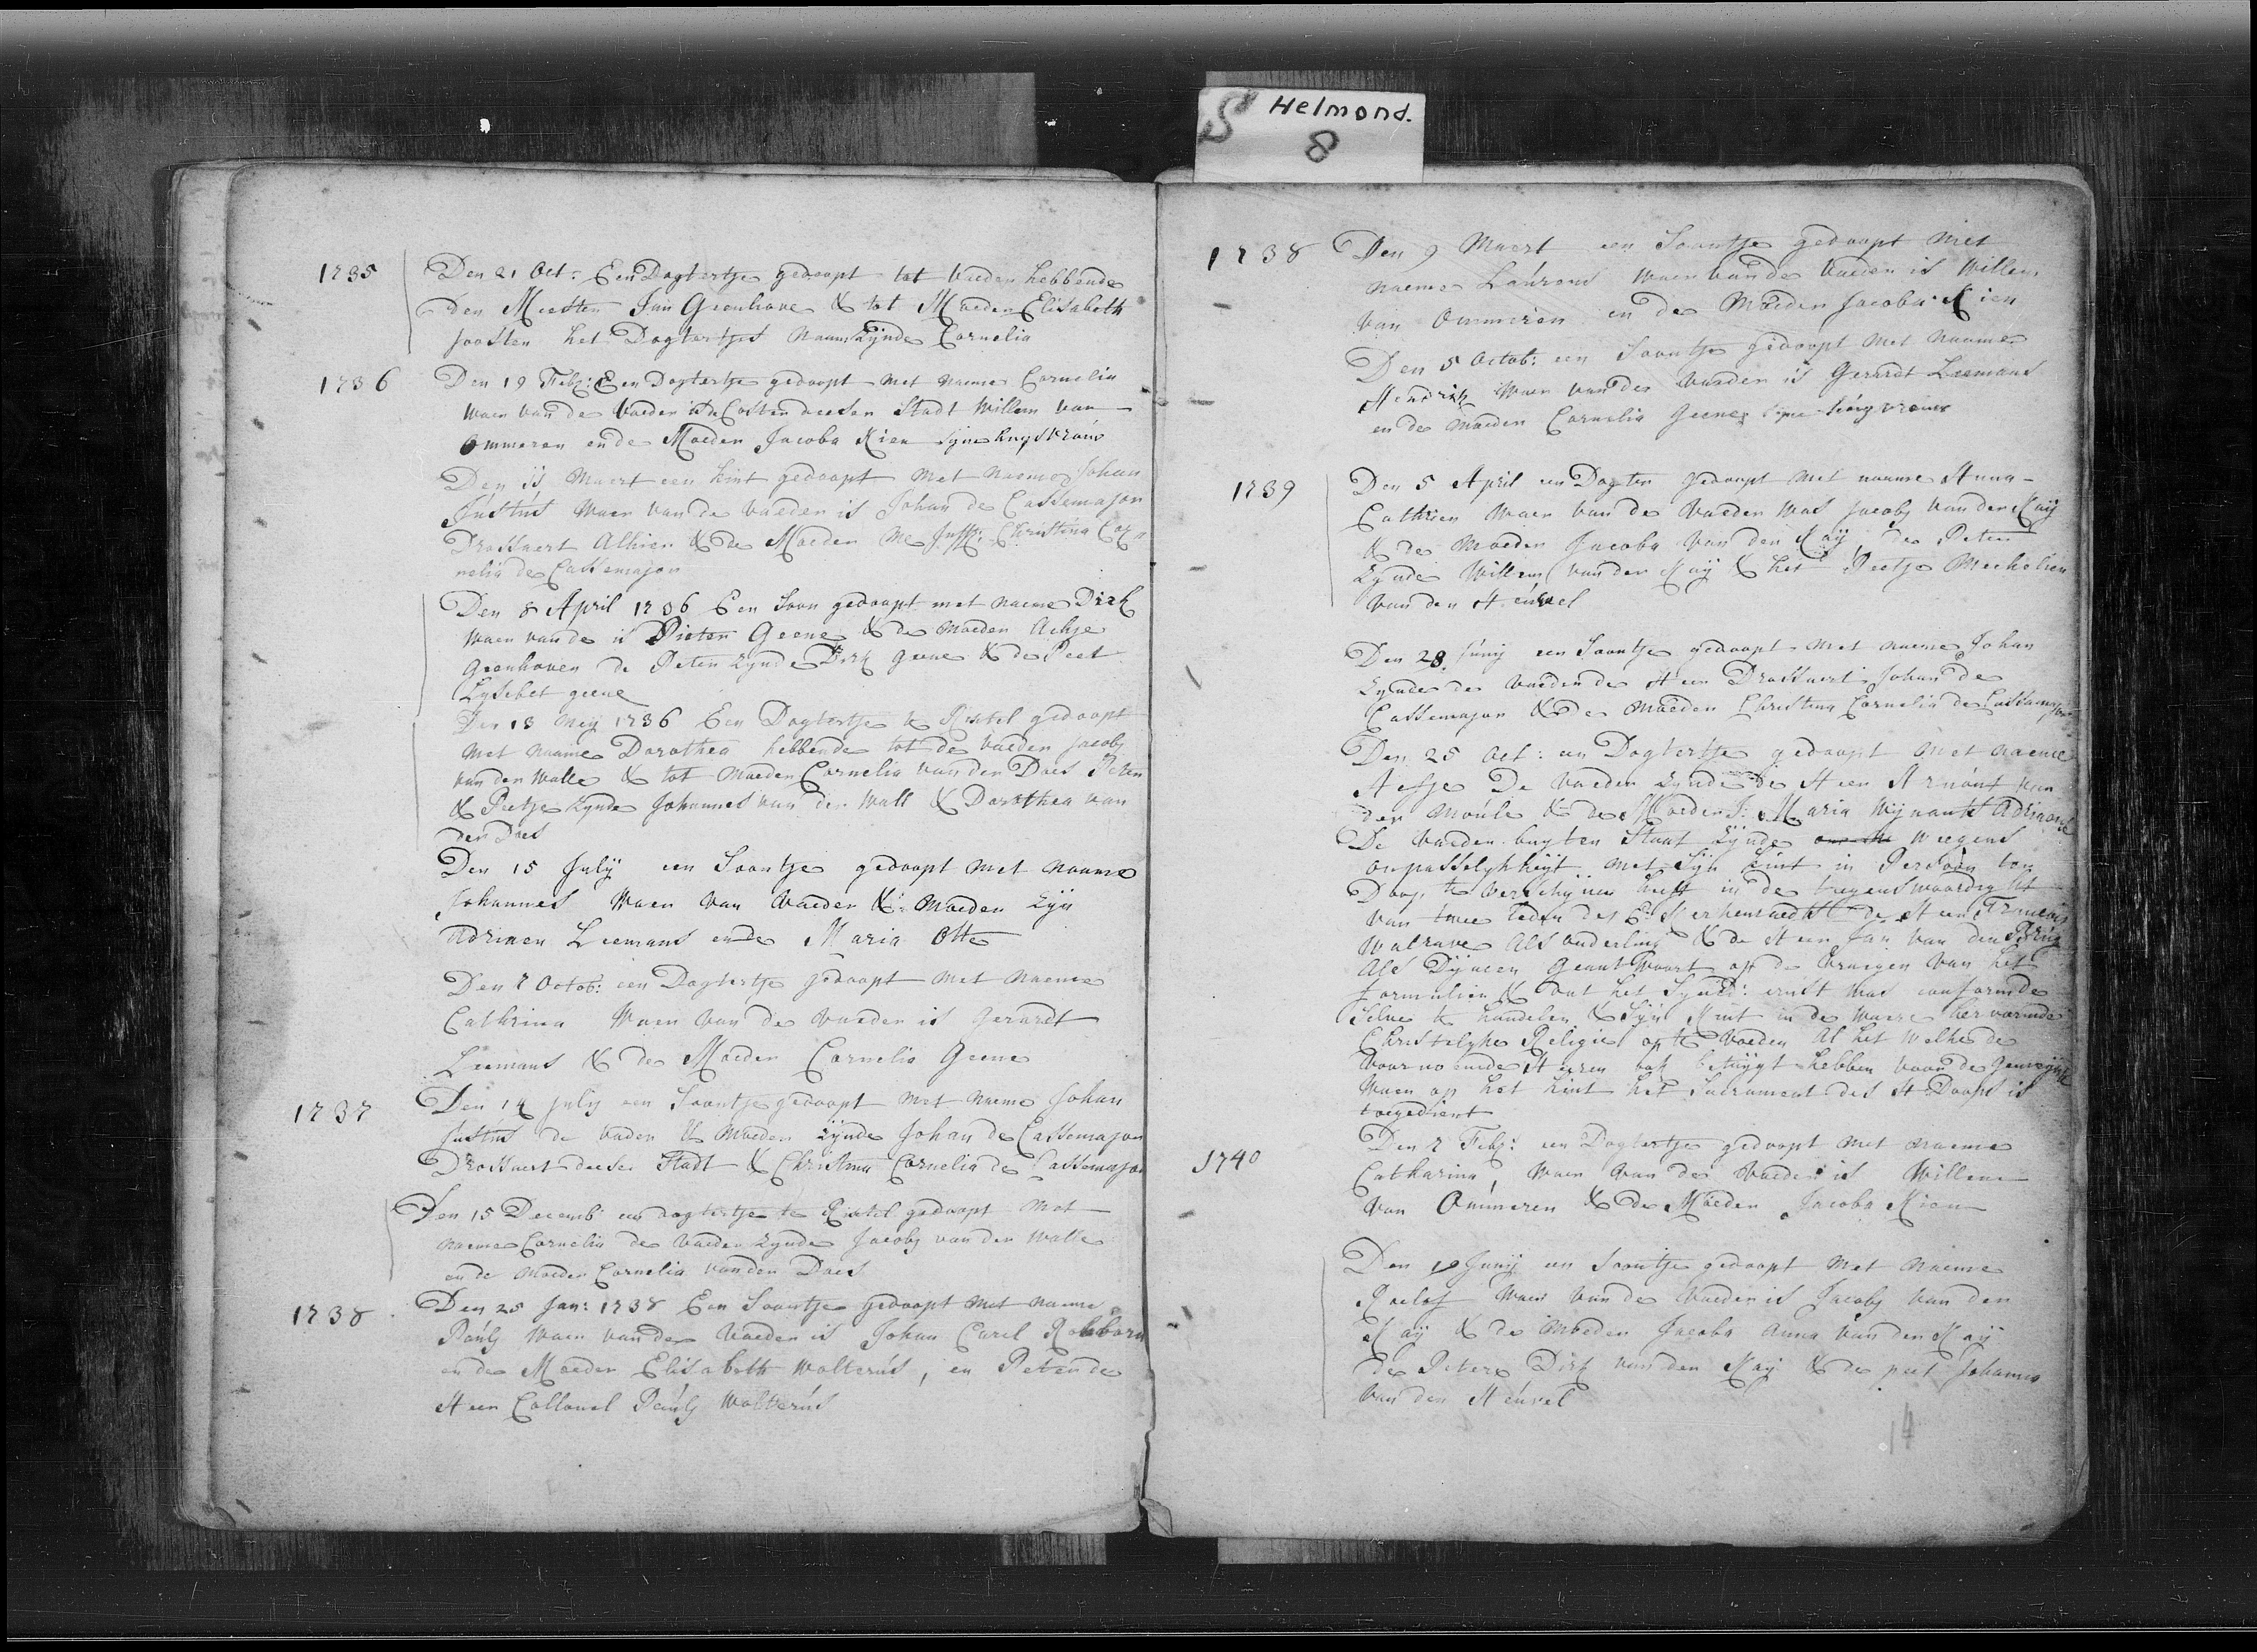 S Helmond.
8
1735 Den 21 Oct: Een Dogtertje gedoopt tot Vaeder hebbende
den Meester Jan Geenhove & tot Moeder Elisabeth
Joosten het Dogtertjes naam zijnde Cornelia
1736 Den 19 Feb: Een Dogtertje gedoopt met naeme Cornelia
waer van de Vaeder is de Coster deeser Stadt Willem van
Ommeren en de Moeder Jacoba Kien syne huysvrouw
Den Maert een kint gedoopt met naeme Johan
Justus waer van de vaeder is Johan de Cassemajor
Drossaert Alhier & de Moeder Me Juffr: Christina Cor"
nelia de Cassemajor
Den 8 April 1736 Een Soon gedoopt met naeme Dirk
waer van de is Pieter Geene & de moeder
Geenhoven de Peter zynde Dirk geene & de Peet
Lysebet geene
Den 13 Meij 1736 Een Dogtertje te Rixtel gedoopt
met naame Dorothea hebbende tot de vaeder Jacob
van der Walle & tot moeder Cornelia van der Does Peter
& Peetje zynde Johannes van der Wall & Dorothea van
der Does
Den 15 July een Soontje gedoopt met naame
Johannes Waer van Vaeder & Moeder zyn
Adriaen Leemans ende Maria Otte
Den 7 Octob: een Dogtertje gedoopt met naeme
Cathrina Waer van de Vaeder is Gerardt
Leemans & de Moeder Cornelia Geene
1737 Den 14 July een Soontje gedoopt met naeme Johan
Justus de vader & moeder zynde Johan de Cassemajor
Drossaert deeser Stadt & Christina Cornelia de Cassemajor
Den 15 Decemb: een dogtertje te Rixtel gedoopt met
naeme Cornelia de vaeder zynde Jacob van der Walle
en de moeder Cornelia van der Does
1738 Den 25 Jan: 1738 Een Soontje gedoopt met naeme
Pauls waer van de Vaeder is Johan Carel
en de Moeder Elisabeth Wolterus, en Peter de
Heer Collonel Pauls Wolterus
1738 Den 9 Maert een Soontje gedoopt met
naeme Laurens waer van de Vaeder is Willem
van Ommeren en de Moeder Jacoba Kien
Den 5 Octob: een Soontje gedoopt met naame
Hendrik waer van de Vaeder is Gerardt Leemans
en de moeder Cornelia Geene syne huisvrouw
1739 Den 5 April een Dogter gedoopt met naame Anna-
Cathrien waer van de Vaeder was Jacob van der Kaij
& de moeder Jacoba van der Kaij de Peter
zynde Willem van der Kaij & het Peetje Mechelien
van den Heuvel
Den 28 Junij een Soontje gedoopt met naeme Johan
zynde de vaeder de Heer Drossaert Johan de
Cassemajor & de moeder Christina Cornelia de Cassamajor
Den 25 Oct: een Dogtertje gedoopt met naeme
De Vaeder zynde de Heer Arnout van
der Moule & de Moeder J: Maria Wynants
De Vaeder buyten Staat zynde weegens
onpasselykheyt met Syn kint in Persoon ten
Doop te verschynen heeft in de teegenswoordight
van twee Leden des E: Kerkenraedts de Heer Francois
Walrave als ouderling & de Heer Jan van den
als Dijacen geantwoort op de vraegen van het
formulier & dat het Syn ernst was conform de
Selve te handelen & Syn kint in de waere hervormde
Christelyke Religie op te voeden Al het welke de
voornoemde Heeren ook betuygt hebben voor de gemeijnte
waer op het kint het Sacrament des H Doops is
toegedient
1740 Den 7 Feb: een Dogtertje gedoopt met naeme
Catharina, Waer van de Vaeder is Willem
Van Ommeren & de Moeder Jacoba Kien
Den 10 Junij een Soontje gedoopt met naeme
Roelof Waer van de Vaeder is Jacob van der
Kaij & de moeder Jacoba Anna van der Kaij
de Peter Dirk van der Kaij & de peet Johanna
van den Heuvel
14